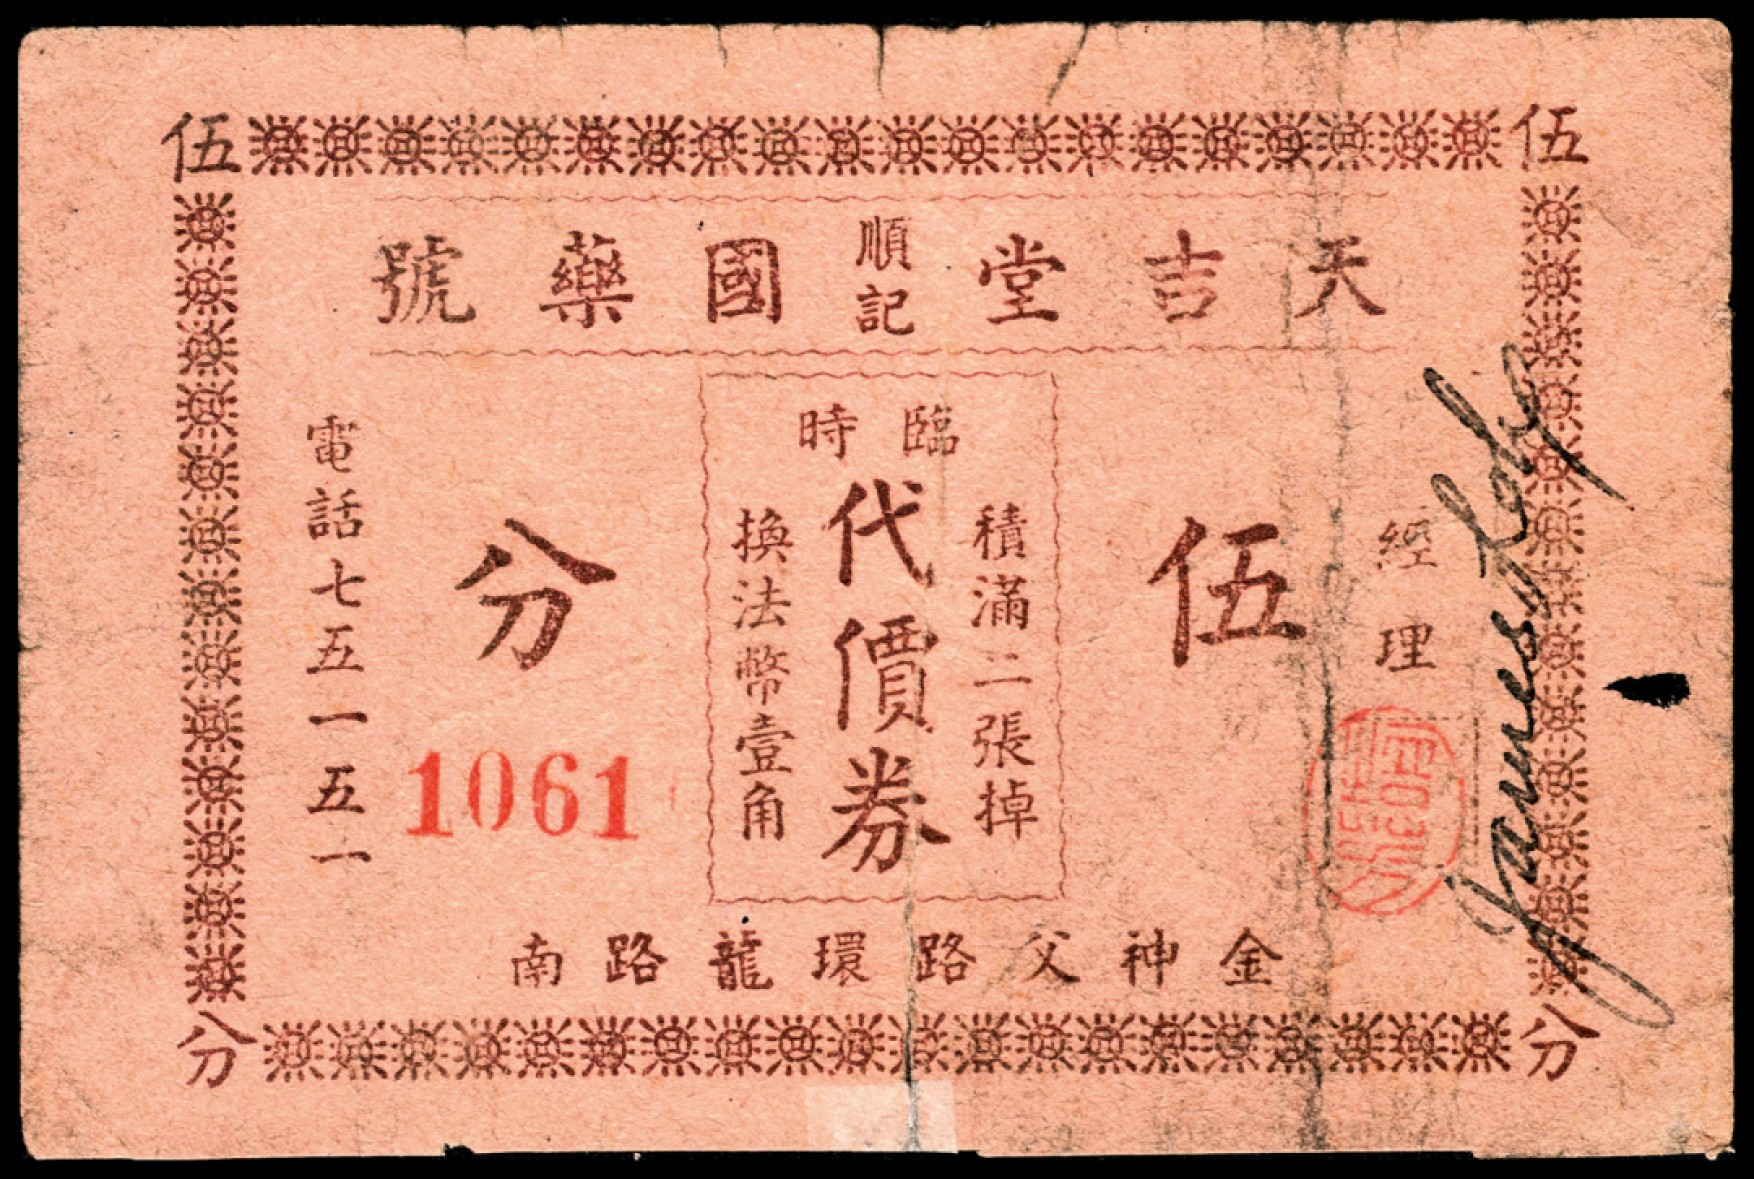 伍 伍
天吉堂順記國藥號
臨時
代價券
積滿二張掉
換法幣壹角
伍分
經理
電話七五一五一
1061
金神父路環龍路南
分 分
James